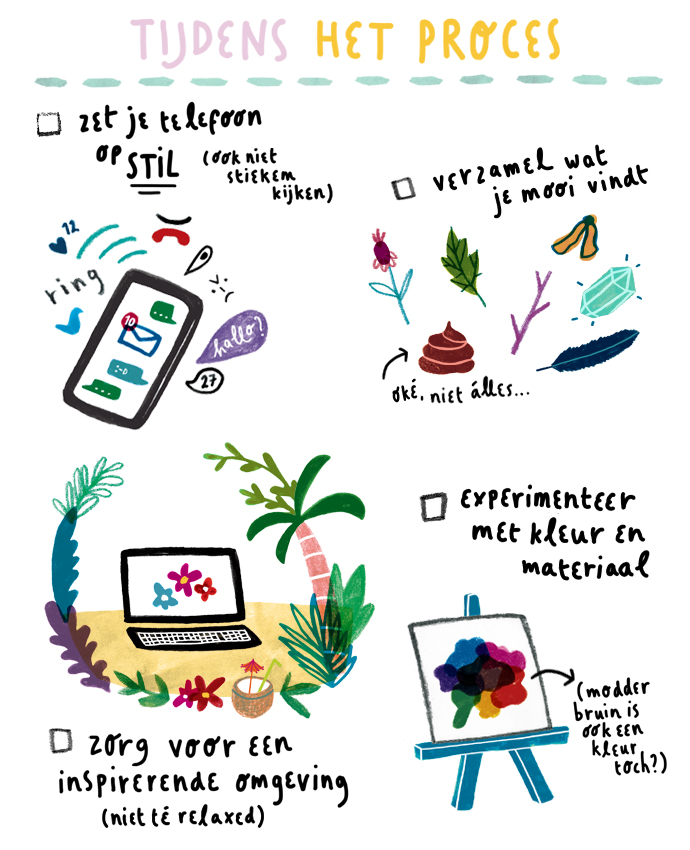 TIJDENS HET PROCES
zet je telefoon
op STIL
(ook niet
stiekem
kijken)
12
ring
10
:-D
hallo?
27
verzamel wat
je mooi vindt
oké, niet álles...
experimenteer
met kleur en
materiaal
(modder
bruin is
ook een
kleur
toch?)
zorg voor een
inspirerende omgeving
(niet té relaxed)